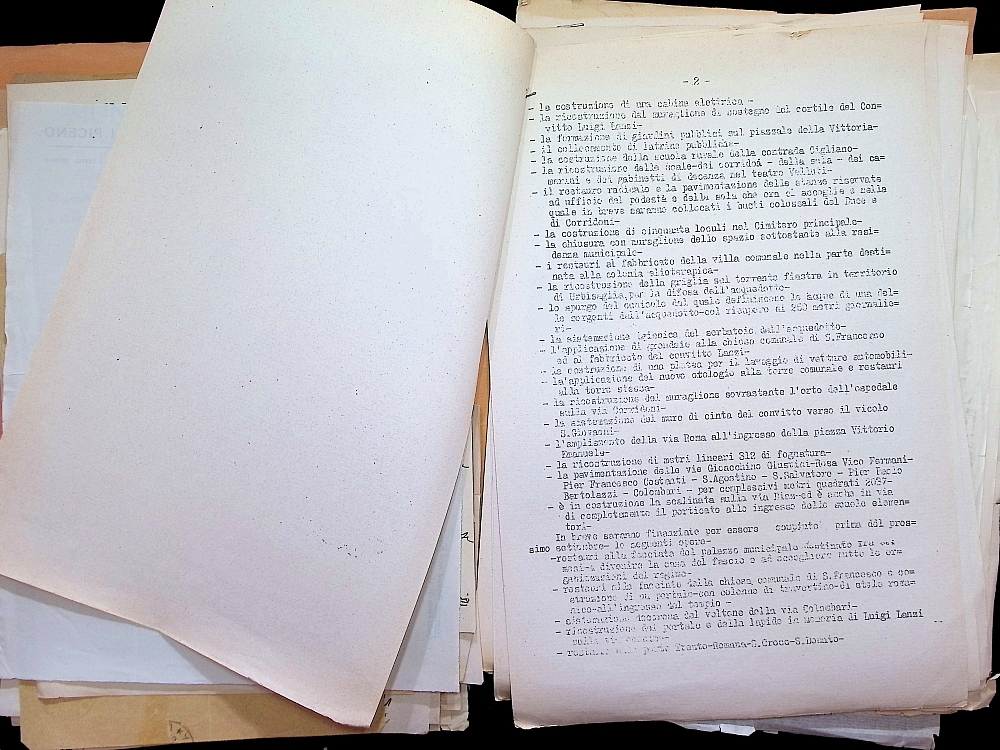 - 2 -
- la costruzione di una cabina elettrica -
- la ricostruzione del muraglione di sostegno del cortile del Con=
vitto Luigi Lanzi-
- la formazione di giardini pubblici sul piazzale della Vittoria-
- il collocamento di latrine pubbliche-
- la costruzione della scuola rurale della contrada Cigliano-
- la ricostruzione delle scale-dei corridoi - della sala - dei ca=
merini e dei gabinetti di decenza nel teatro Velluti-
- il restauro radicale e la pavimentazione delle stanze riservate
ad ufficio del podestà e della sala che ora si accoglie e nella
quale in breve saranno collocati i busti colossali del Duce e
di Corridoni-
- la costruzione di cinquanta loculi nel Cimitero principale-
- la chiusura con muraglione dello spazio sottostante alla resi=
denza municipale-
- i restauri al fabbricato della villa comunale nella parte desti=
nata alla colonia elioterapica-
- la ricostruzione della griglia sul torrente fiastra in territorio
di Urbisaglia, per la difesa dell'acquedotto-
- lo spurgo del cunicolo dal quale defluiscono le acque di una del=
le sorgenti dell'acquedotto-col ricupero di 260 metri giornalie=
ri-
- la sistemazione igienica del serbatoio dell'acquedotto-
- l'applicazione di grondaie alla chiesa comunale di S.Francesco
ed al fabbricato del convitto Lanzi-
- la costruzione di una platea per il lavaggio di vetture automobili-
- la'applicazione del nuovo orologio alla torre comunale e restauri
alla torre stessa-
- la ricostruzione del muraglione sovrastante l'orto dell'ospedale
sulla via Corridoni-
- la sistemazione del muro di cinta del convitto verso il vicolo
S.Giovanni-
- l'ampliamento della via Roma all'ingresso della piazza Vittorio
Emanuele-
- la ricostruzione di metri lineari 312 di fognatura-
- la pavimentazione delle vie Gioacchino Giustini-Rosa Vico Fermani-
Pier Francesco Costanti - S.Agostino - S.Salvatore - Pier Paolo
Bertolazzi - Colombari - per complessivi metri quadrati 2097-
- è in costruzione la scalinata sulla via Diaz-ed è anche in via
di completamento il porticato all'ingresso delle scuole elemen=
tari-
In breve saranno finanziate per essere compiute prima del pros=
simo settembre- le seguenti opere-
-restauri alla facciata del palazzo municipale destinato fra sei
mesi-a divenire la casa del fascio e ad accogliere tutte le or=
ganizzazioni del regime-
- restauri alla facciata della chiesa comunale di S.Francesco e co=
struzione di un portale-con colonne di travertino-di stile roma=
nico-all'ingresso del tempio -
- sistemazione decorosa del voltone della via Colombari-
- ricostruzione del portale e della lapide in memoria di Luigi Lanzi
sulla via
- restauro alle porte Trento-Romana-S.Croce-S.Donato-